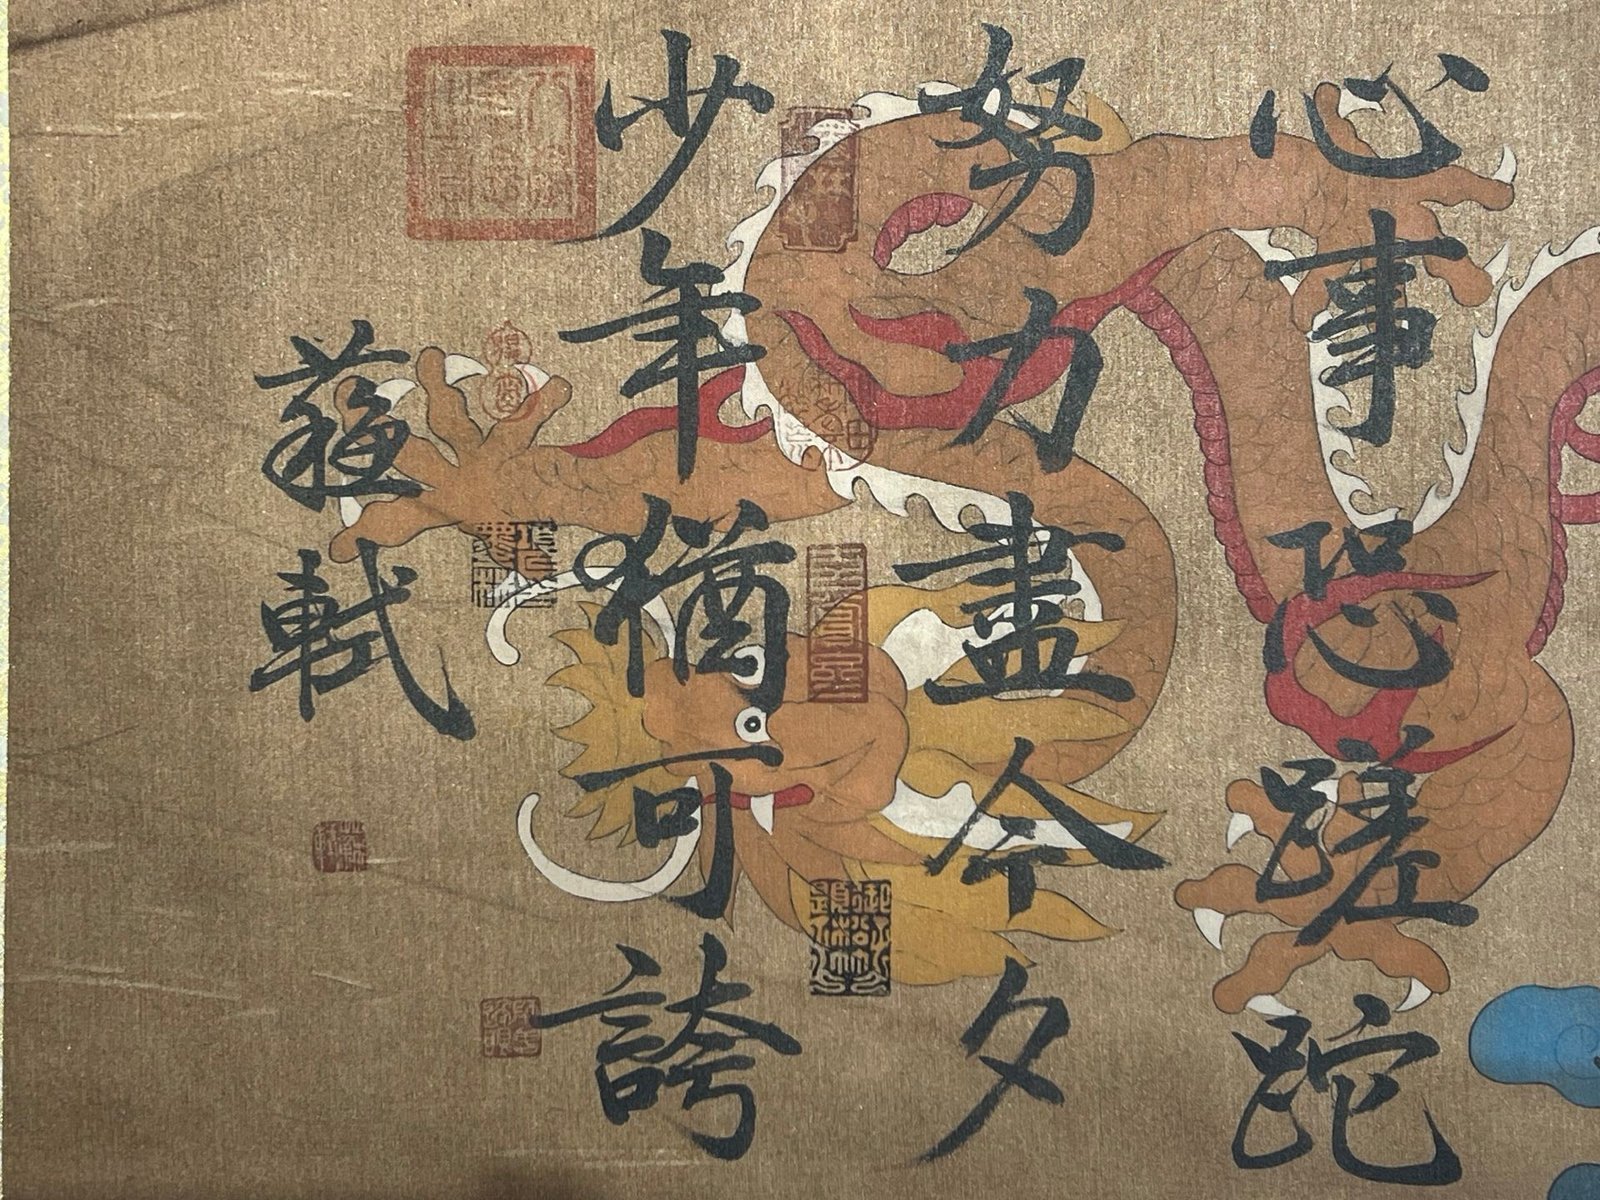 心事恐蹉跎
努力盡今夕
少年猶可誇
蘇軾